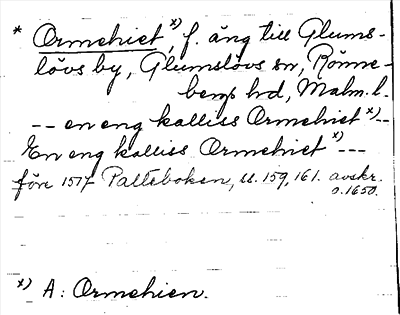 * Ormehiet x), f. äng till Glums-
lövs by, Glumslövs sn, Rönne-
bergs hd, Malm. l.
-- en eng kallies Ormehiet x)--
En eng kallies Ormehiet x)---
före 1517 Palteboken, ll. 159, 161. avskr.
o. 1650.
x) A: Ormehien.